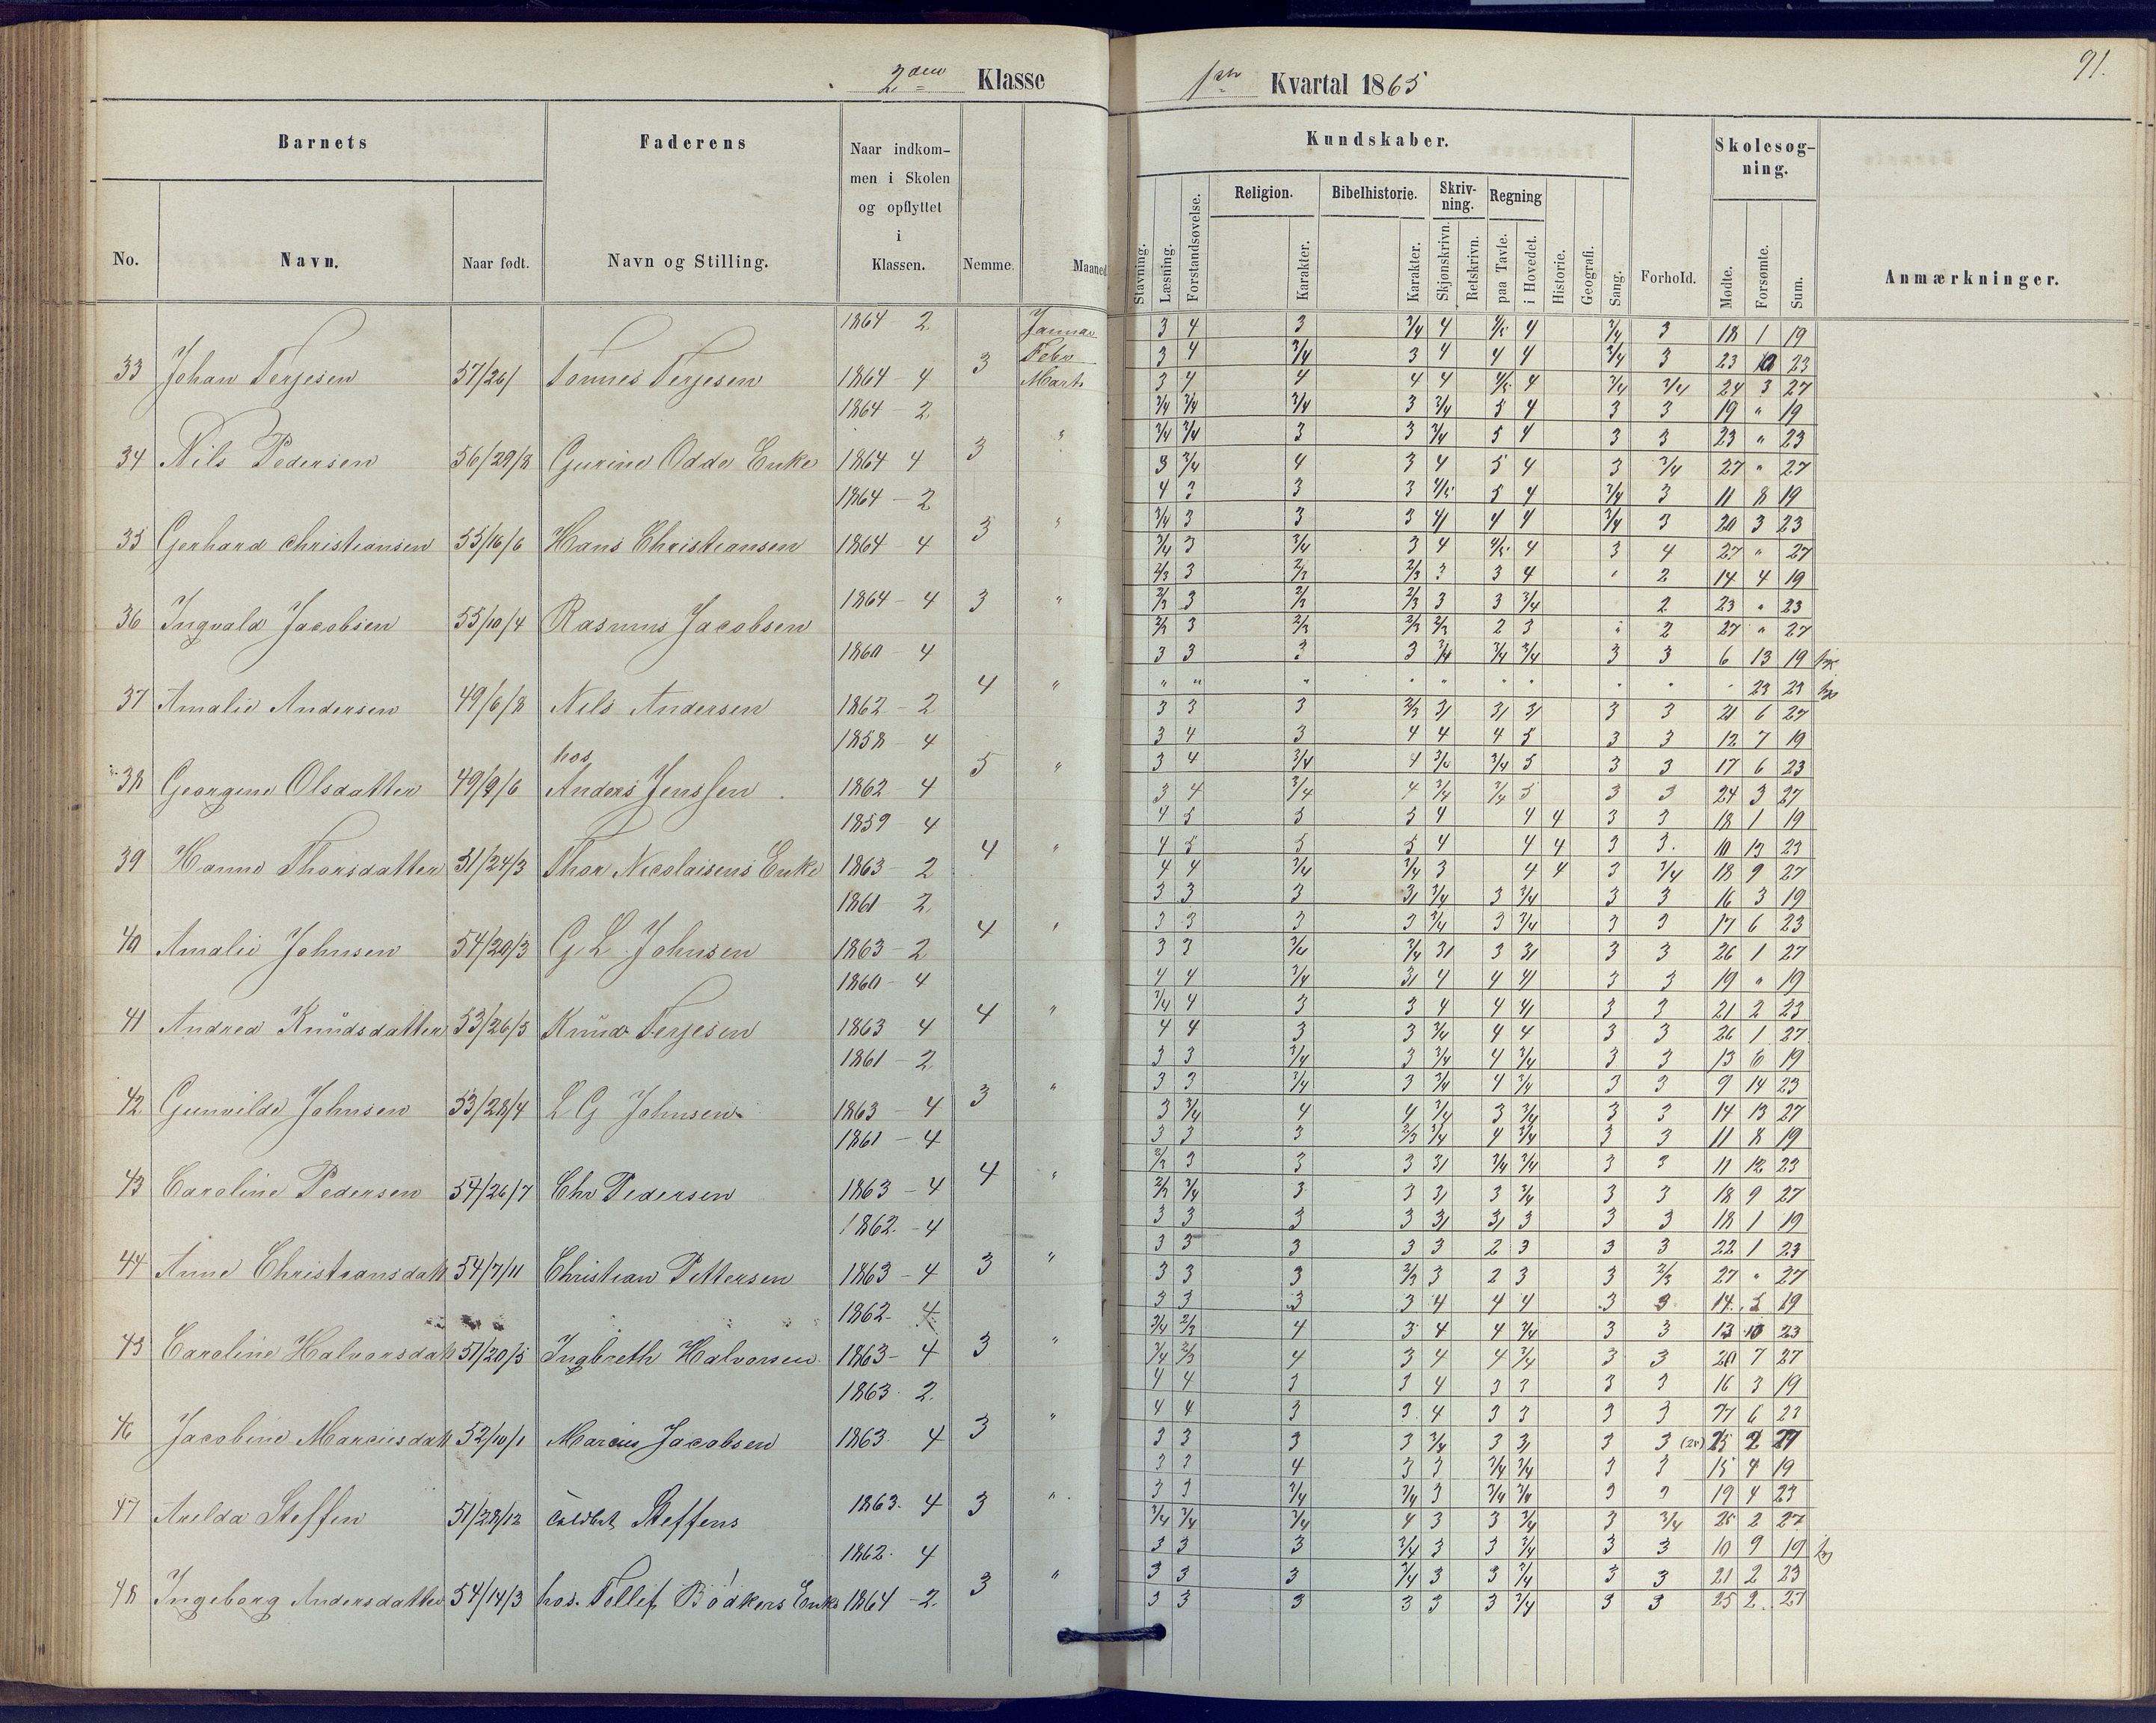 2den Klasse
1ste Kvartal 1865
91.
Barnets
Faderens
Naar indkommen i Skolen og opflyttet i Klassen.
Kundskaber.
Skolesøgning.
No. Navn. Naar født. Navn og Stilling. Nemme. Maaned
Stavning. Læsning. Forstandsøvelse. Religion. Karakter. Bibelhistorie. Karakter. Skrivning. Skjønskrivn. Retskrivn. Regning paa Tavle. i Hovedet. Historie. Geografi. Sang. Forhold. Mødte. Forsømte. Sum. Anmærkninger.
1864 - 2 Januar 3 4 3 3/4 4 4/5 4 3/4 3 18 1 19
33 Johan Terjesen 57/26/ Tønnes Terjesen 3 Febr 3 4 3/4 3 4 4 4 3/4 3 23 0 23
1864 - 4 Marts 3 4 4 4 4 4/5 4 3/4 3/4 24 3 27
1864 - 2 3/4 3/4 3/4 3 3/4 5 4 3 3 19 " 19
34 Nils Pedersen 56/29/8 Gurine Odde Enke 3 " 3/4 3/4 3 3 3/4 5 4 3 3 23 " 23
1864 4 3 3/4 4 3 4 5 4 3 3/4 27 " 27
1864 - 2 4 3 3 3 4/5 5 4 3/4 3 11 8 19
35 Gerhard Christiansen 55/16/6 Hans Christiansen 3 " 3/4 3 3 3 4 4 4 3/4 3 20 3 23
1864 4 3/4 3 3/4 3 4 4/5 4 3 4 27 " 27
2/3 3 2/3 2/3 3 3 4 " 2 14 4 19
36 Ingvald Jacobsen 55/10/4 Rasmus Jacobsen 1864 - 4 3 " 2/3 3 2/3 2/3 3 3 3/4 2 23 " 23
2/3 3 2/3 2/3 2/3 2 3 " 2 27 " 27
1860 - 4 3 3 3 3 3/4 3/4 3/4 3 3 6 13 19
37 Amalie Andersen 49/6/8 Nils Andersen 4 " " " " " " " " " " " 23 23
1862 - 2 3 3 3 2/3 3 3 3 3 3 21 6 27
1858 - 4 3 4 3 4 4 4 5 3 3 12 7 19
38 Georgine Olsdatter 49/9/6 hos Anders Jenssen 5 " 3 4 3/4 4 3/4 3/4 5 3 3 17 6 23
1862 - 4 3 4 3/4 4 3/4 3/4 5 3 3 24 3 27
1859 - 4 4 5 5 5 4 4 4 3 3 18 1 19
39 Hanne Thorsdatter 51/24/3 Thor Nicolaisens Enke 4 " 4 5 5 5 4 4 4 3 3. 10 13 23
1863 - 2 4 4 3/4 3/4 3 4 4 3 3/4 18 9 27
1861 - 2 3 3 3 3 3/4 3 3/4 3 3 16 3 19
40 Amalie Johnsen 54/20/3 G. L. Johnsen 4 " 3 3 3 3 3/4 3 3/4 3 3 17 6 23
1863 - 2 3 3 3/4 3/4 3 3 3 3 3 26 1 27
1860 - 4 4 4 3/4 3 4 4 4 3 3 19 " 19
41 Andrea Knudsdatter 53/26/5 Knud Terjesen 4 " 3/4 4 3 3 4 4 4 3 3 21 2 23
1863 4 4 4 3 3 3/4 4 4 3 3 26 1 27
1861 - 2 3 3 3/4 3 3/4 4 3/4 3 3 13 6 19
42 Gunvilde Johnsen 53/28/4 L G Johnsen 3 " 3 3 3/4 3 3/4 4 3/4 3 3 9 14 23
1863 - 4 3 3/4 4 4 3/4 3 3/4 3 3 14 13 27
1861 - 4 3 3 3 2/3 3/4 4 3/4 3 3 11 8 19
43 Caroline Pedersen 54/26/7 Chr Pedersen 4 " 2/3 3 3 3 3 3/4 3/4 3 3 11 12 23
1863 - 4 2/3 3/4 3 3 3 3 3/4 3 3 18 9 27
1862. - 4 3 3 3 3 3 3 3 3 3 18 1 19
44 Anne Christiansdatt 54/7/11 Christian Pettersen 3 " 3 3 3 3 3 2 3 3 3 22 1 23
1863 - 4 3 3 3 2/3 3 2 3 3 2/3 27 " 27
1862. 4 3 3 3 3 4 4 4 3 3 14 5 19
45 Caroline Halvorsdatt 51/20/5 Ingbreth Halvorsen 3 " 3/4 2/3 4 3 4 4 3/4 3 3 13 10 23
1863 - 4 3/4 2/3 4 3 4 4 3/4 3 3 20 7 27
1863. 2. 4 4 3 3 4 3 3 3 3 16 3 19
46 Jacobine Marcusdatt 52/10/1 Marcus Jacobsen 3 " 4 4 3 3 4 3 3 3 3 17 6 23
1863. 4 3 3 3 3 3/4 3 3 3 3 (2v) 25 2 27
3 3 4 3 3 3/4 3/4 3 3 15 4 19
47 Arelda Steffen 51/28/12 Steffens 1863. 4 3 " 3 3 3/4 3/4 3 3/4 3/4 3 3 19 4 23
3/4 3/4 3/4 4 3 3 3/4 3 3/4 25 2 27
1862. 4 3 3 3 3/4 3 3 3/4 3 3 10 9 19
48 Ingeborg Andersdatter 54/14/3 hos. Tollef Bødkers Enke 3 " 3 3 3 3/4 3 3 3/4 3 3 21 2 23
1864 - 2. 3 3 3 3 3 3 3/4 3 3 25 2 27